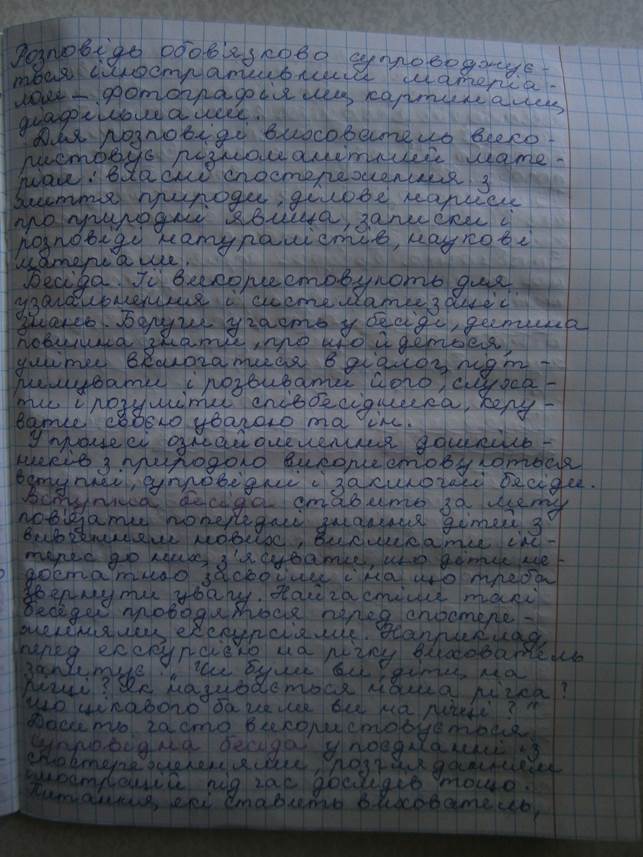 Розповідь обов'язково супроводжує-
ться ілюстративним матеріа-
лом – фотографіями, картинами,
діафільмами.
Для розповіді вихователь вико-
ристовує різноманітний мате-
ріал: власні спостереження з
життя природи, ділові нариси
про природні явища, записки і
розповіді натуралістів, наукові
матеріали.
Бесіда. Її використовують для
узагальнення і систематизації
знань. Беручи участь у бесіді, дитина
повинна знати, про що йдеться,
уміти включатися в діалог, підт-
римувати і розвивати його, слуха-
ти і розуміти співбесідника, керу-
вати своєю увагою та ін.
У процесі ознайомлення дошкіль-
ників з природою використовуються
вступні, супровідні і заключні бесіди.
Вступна бесіда ставить за мету
пов'язати попередні знання дітей з
вивченням нових, викликати ін-
терес до них, з'ясувати, що діти не-
достатньо засвоїли і на що треба
звернути увагу. Найчастіше такі
бесіди проводяться перед спостере-
женнями, екскурсіями. Наприклад,
перед екскурсією на річку вихователь
запитує: "Чи були ви, діти, на
річці? Як називається наша річка?
Що цікавого бачили ви на річці?"
Досить часто використовується
супровідна бесіда у поєднанні із
спостереженнями, розгляданням
ілюстрацій під час дослідів тощо.
Питання, які ставить вихователь,